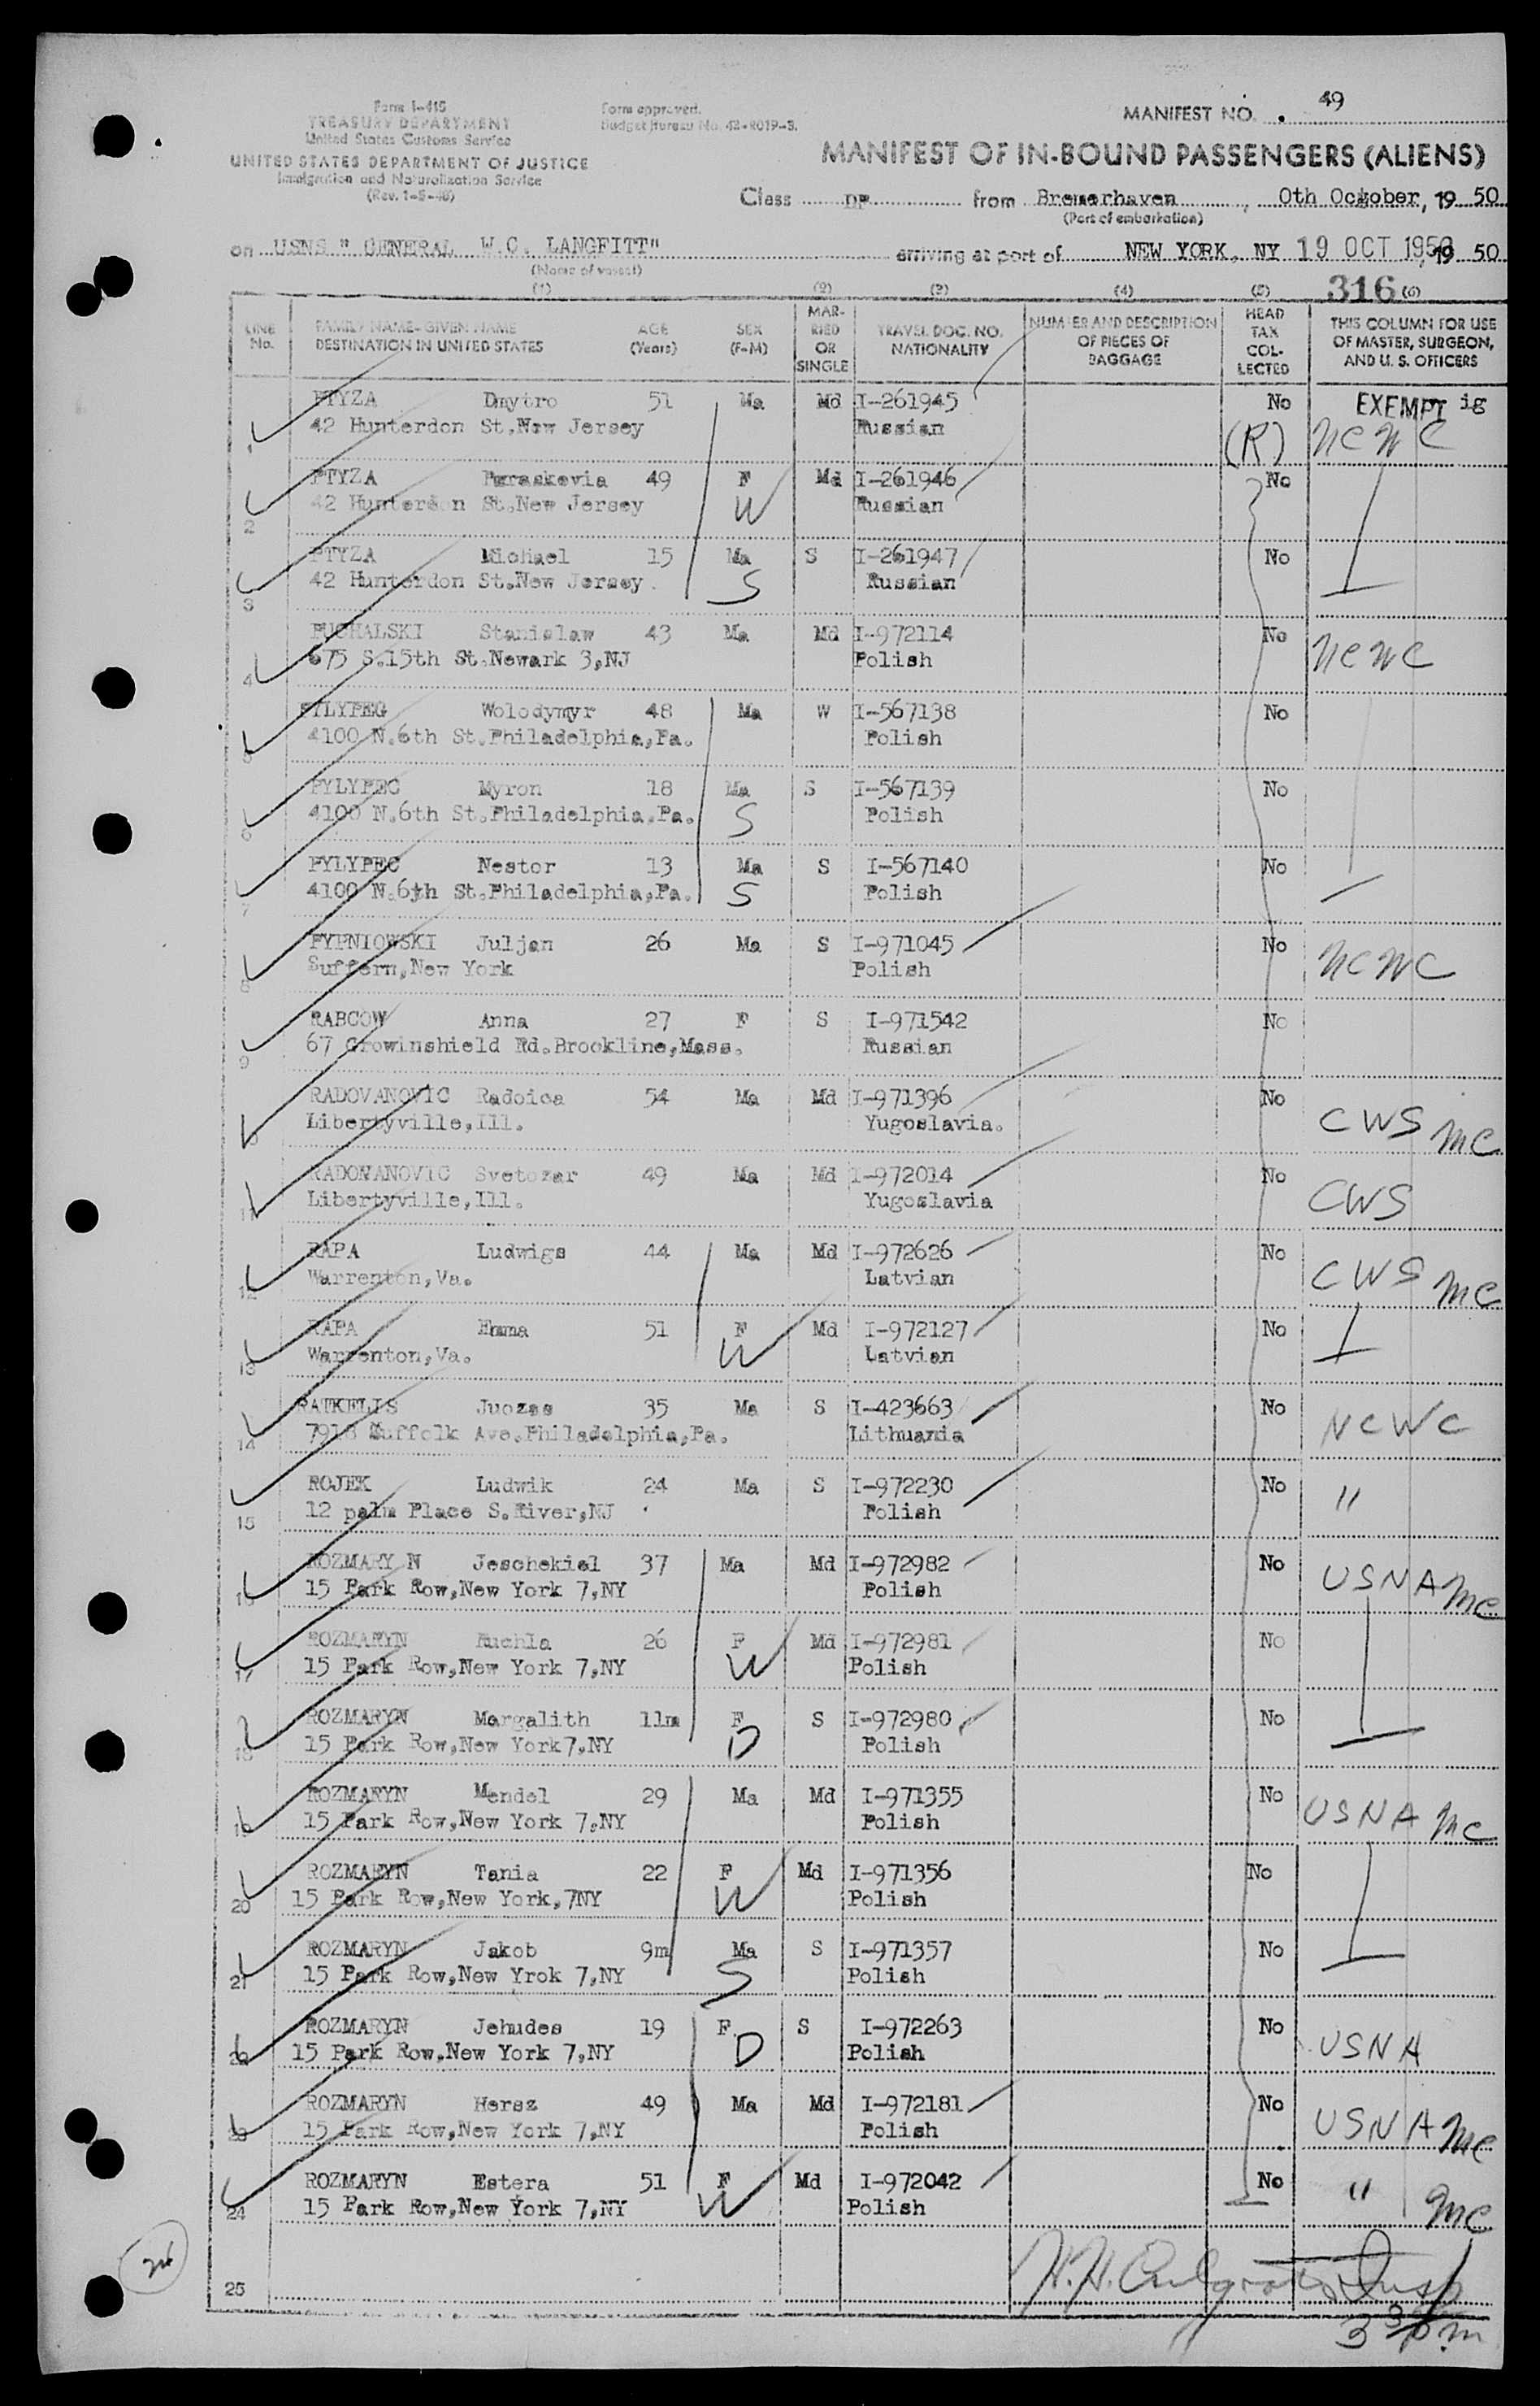 Form I-415
TREASURY DEPARTMENT
United States Customs Service
UNITED STATES DEPARTMENT OF JUSTICE
Immigration and Naturalization Service
(Rev. 1-5-48)
Form approved.
Budget Bureau No. 42-R019-3.
MANIFEST NO. 49
MANIFEST OF IN-BOUND PASSENGERS (ALIENS)
Class DP from Bremerhaven, 0th October, 19 50
(Port of embarkation)
on USNS " GENERAL W.C. LANGFITT" arriving at port of NEW YORK, NY 19 OCT 1950, 19 50
(Name of vessel)
316
(1) (2) (3) (4) (5) (6)
LINE No. FAMILY NAME-GIVEN NAME DESTINATION IN UNITED STATES AGE (Years) SEX (F-M) MARRIED OR SINGLE TRAVEL DOC. NO. NATIONALITY NUMBER AND DESCRIPTION OF PIECES OF BAGGAGE HEAD TAX COLLECTED THIS COLUMN FOR USE OF MASTER, SURGEON, AND U. S. OFFICERS
1 PTYZA Dmytro 51 Ma Md I-261945 No EXEMPT ig
42 Hunterdon St.New Jersey Russian (R) NCWC
2 PTYZA Paraskevia 49 F Md I-261946 No
42 Hunterdon St.New Jersey W Russian
3 PTYZA Michael 15 Ma S I-261947 No
42 Hunterdon St.New Jersey. S Russian
4 PUCHALSKI Stanislaw 43 Ma Md I-972114 No NCWC
675 S.15th St.Newark 3,NJ Polish
5 PYLYPEC Wolodymyr 48 Ma W I-567138 No
4100 N.6th St.Philadelphia,Pa. Polish
6 PYLYPEC Myron 18 Ma S I-567139 No
4100 N.6th St.Philadelphia.Pa. S Polish
7 PYLYPEC Nestor 13 Ma S I-567140 No
4100 N.6th St.Philadelphia,Pa. S Polish
8 PYPNIOWSKI Juljan 26 Ma S I-971045 No NCWC
Suffern,New York Polish
9 RABCOW Anna 27 F S I-971542 No
67 Crowinshield Rd.Brookline,Mass. Russian
10 RADOVANOVIC Radoica 54 Ma Md I-971396 No CWS MC
Libertyville,Ill. Yugoslavia.
11 RADOVANOVIC Svetozar 49 Ma Md I-972014 No CWS
Libertyville,Ill. Yugoslavia
12 RAPA Ludwigs 44 Ma Md I-972626 No CWS MC
Warrenton,Va. Latvian
13 RAPA Emma 51 F Md I-972127 No
Warrenton,Va. W Latvian
14 RATKELIS Juozas 35 Ma S I-423663 No NCWC
7918 Suffolk Ave.Philadelphia,Pa. Lithuania
15 ROJEK Ludwik 24 Ma S I-972230 No "
12 palm Place S.River,NJ Polish
16 ROZMARY N Jeschekiel 37 Ma Md I-972982 No USNA MC
15 Park Row,New York 7,NY Polish
17 ROZMARYN Ruchla 26 F Md I-972981 No
15 Park Row,New York 7,NY W Polish
18 ROZMARYN Margalith 11m F S I-972980 No
15 Park Row,New York7,NY D Polish
19 ROZMARYN Mendel 29 Ma Md I-971355 No USNA MC
15 Park Row,New York 7,NY Polish
20 ROZMARYN Tania 22 F Md I-971356 No
15 Park Row,New York,7NY W Polish
21 ROZMARYN Jakob 9m Ma S I-971357 No
15 Park Row,New Yrok 7,NY S Polish
22 ROZMARYN Jehudes 19 F. S I-972263 No USNA
15 Park Row,New York 7,NY D Polish
23 ROZMARYN Hersz 49 Ma Md I-972181 No USNA MC
15 Park Row,New York 7,NY Polish
24 ROZMARYN Estera 51 F Md I-972042 No " MC
15 Park Row,New York 7,NY W Polish
24
25
H.H. Insp
3 30 pm